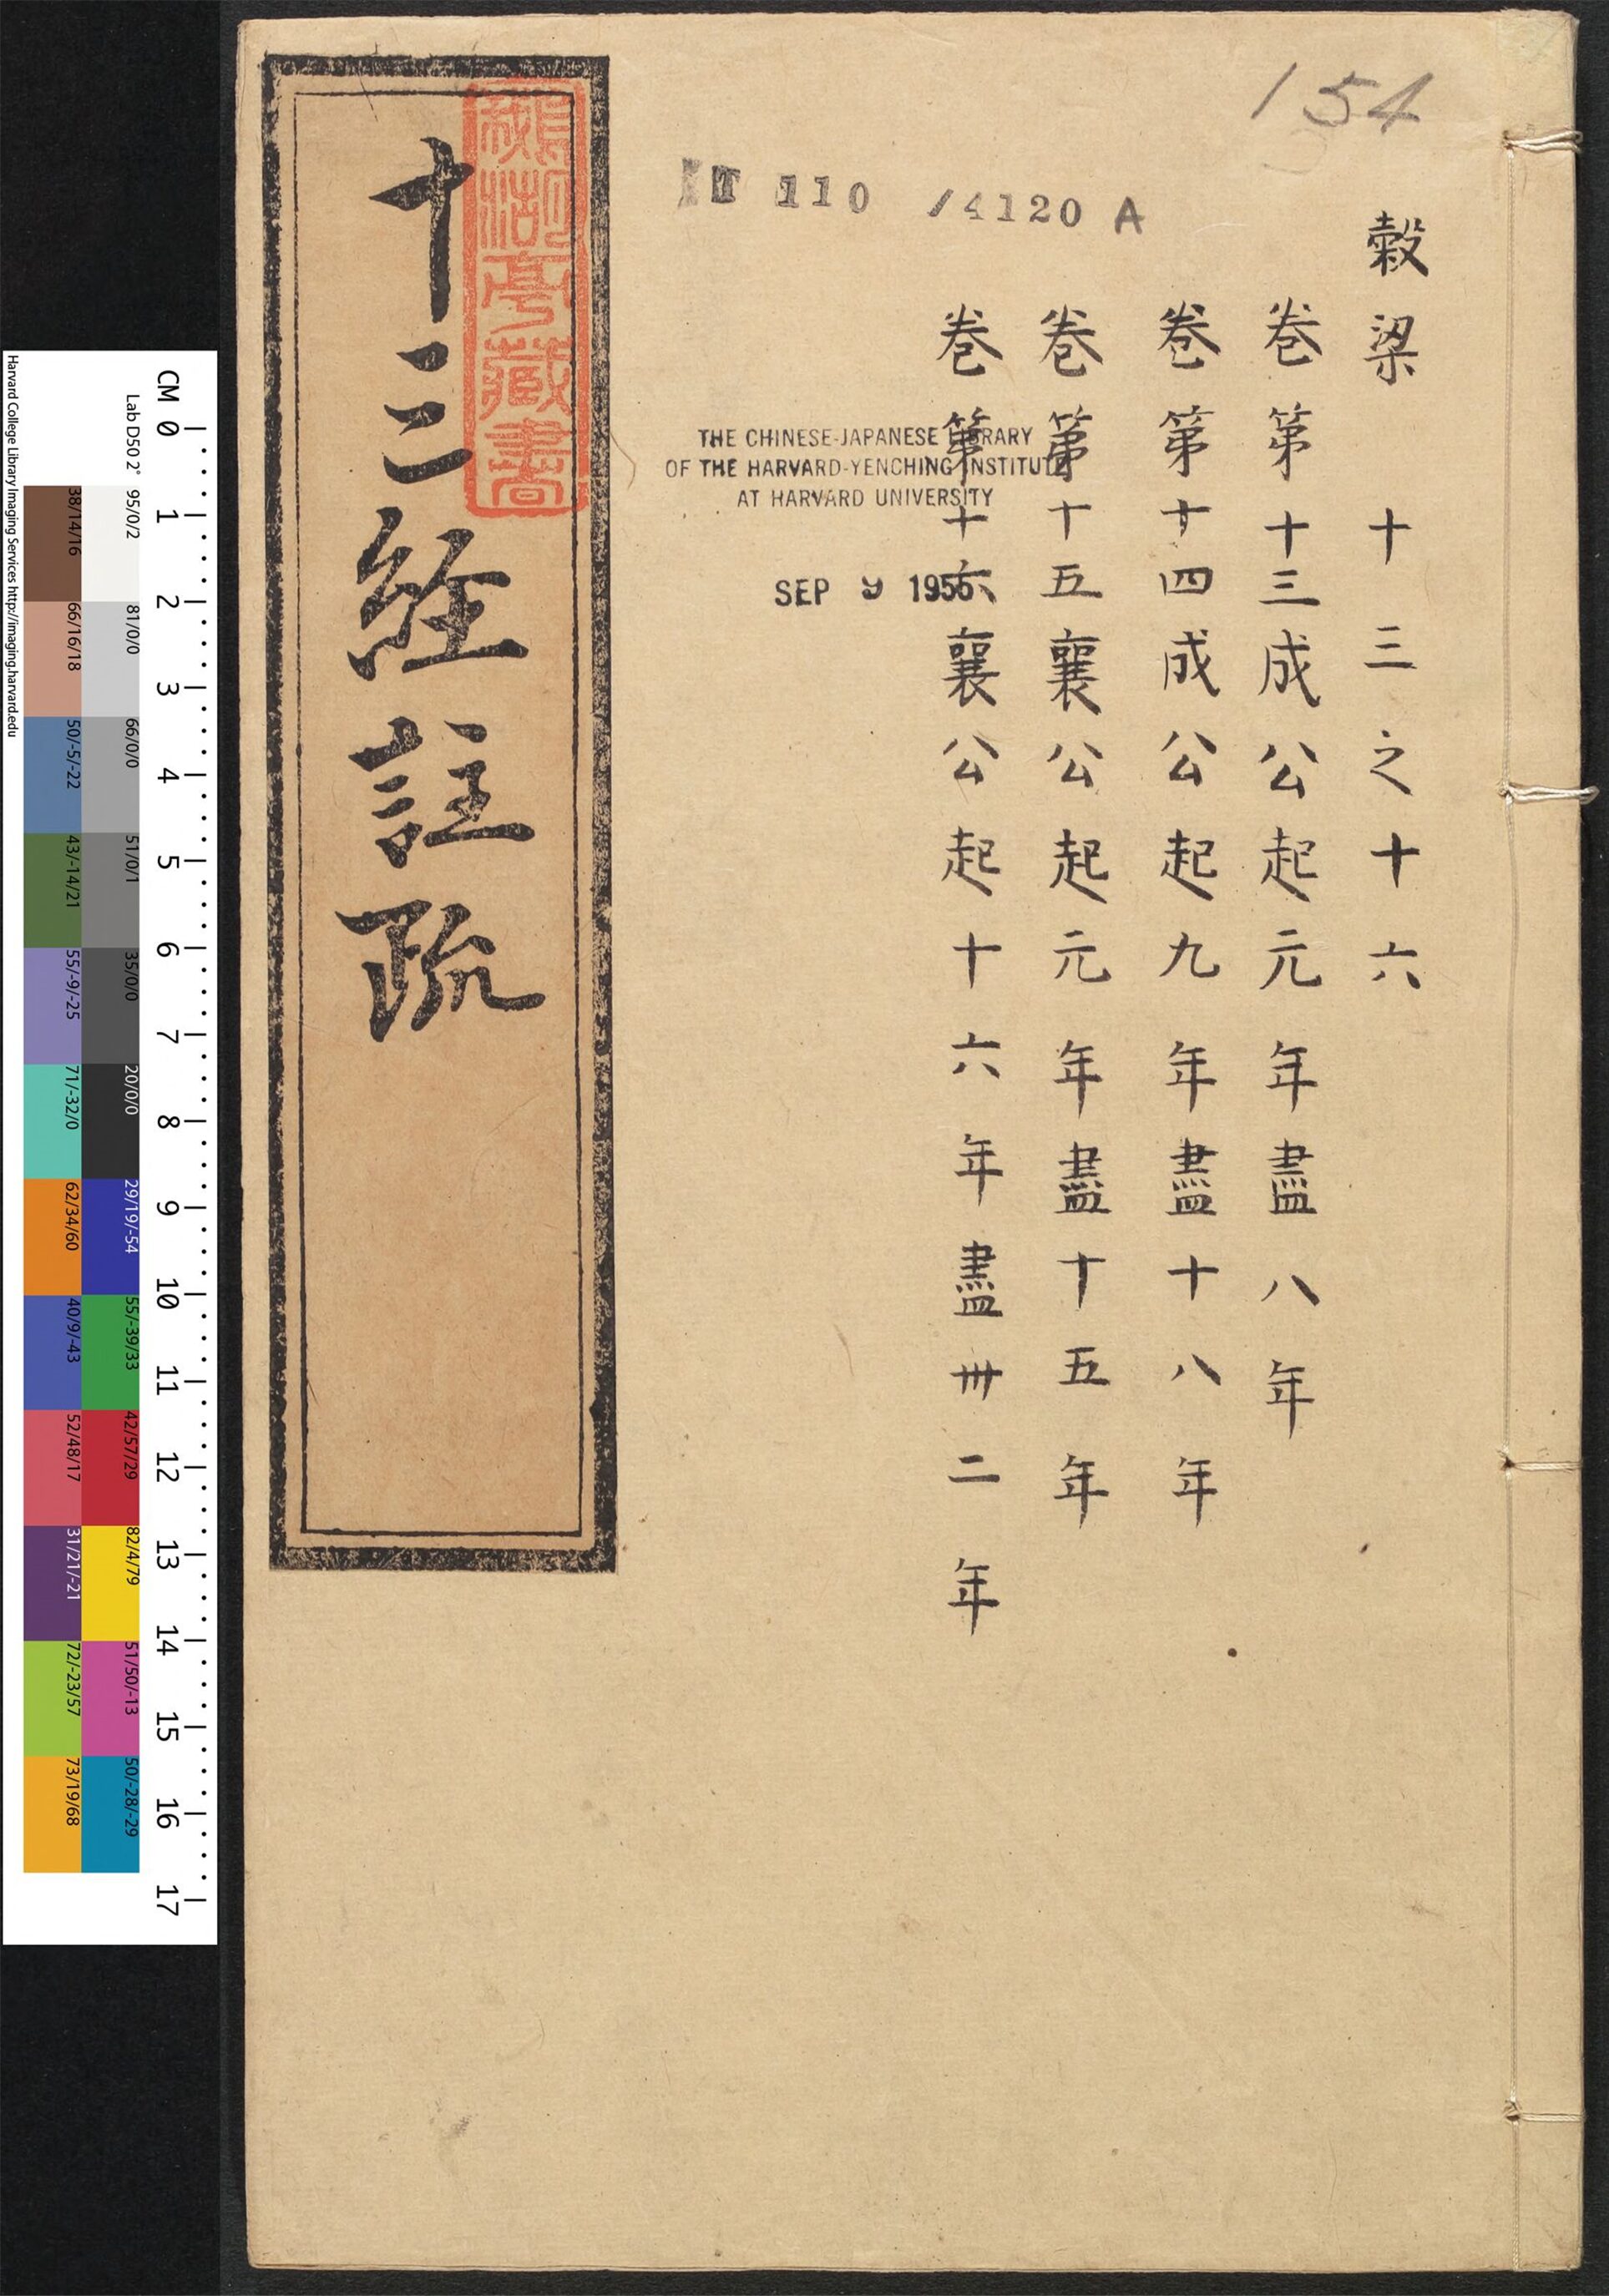 154
T 110 /4120 A
榖梁 十三之十六
卷第十三成公起元年盡八年
卷第十四成公起九年盡十八年
卷第十五襄公起元年盡十五年
卷第十六襄公起十六年盡卅二年
THE CHINESE-JAPANESE LIBRARY
OF THE HARVARD-YENCHING INSTITUTE
AT HARVARD UNIVERSITY
SEP 9 1955
十三経註疏
亭藏書
CM 0 1 2 3 4 5 6 7 8 9 10 11 12 13 14 15 16 17
Lab D50 2°
95/0/2 81/0/0 66/0/0 51/0/1 35/0/0 20/0/0 29/19/-54 55/-39/33 42/57/29 82/4/79 51/50/-13 50/-28/-29
38/14/16 66/16/18 50/-5/-22 43/-14/21 55/-9/-25 71/-32/0 62/34/60 40/9/-43 52/48/17 31/21/-21 72/-23/57 73/19/68
Harvard College Library Imaging Services http://imaging.harvard.edu